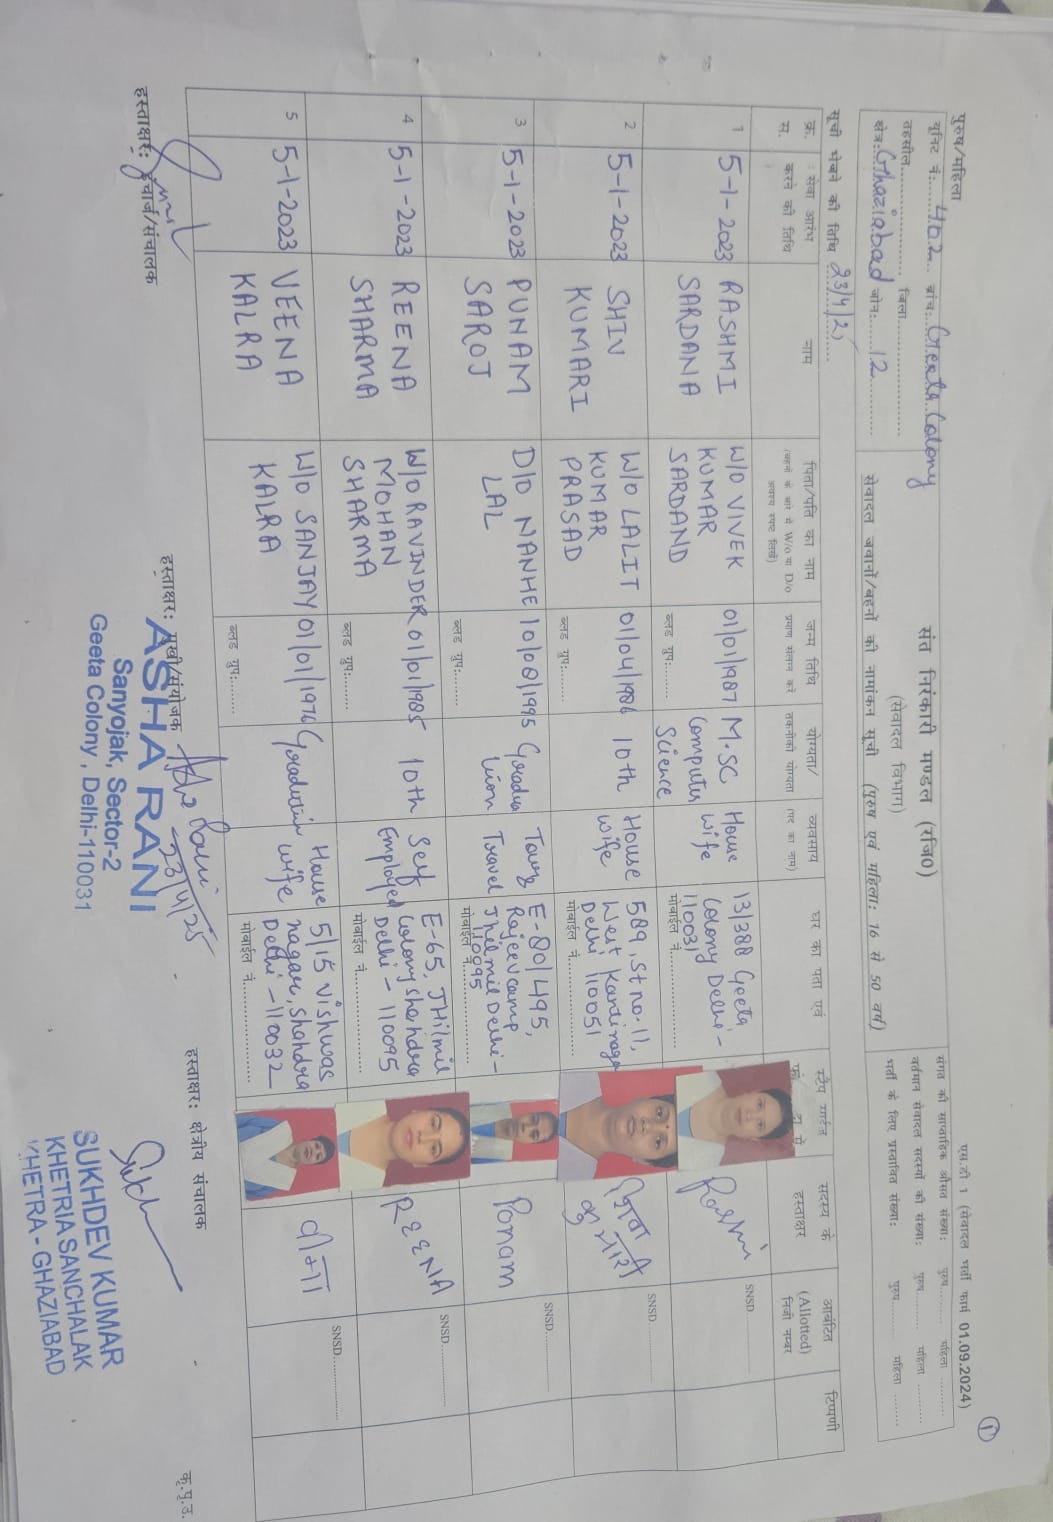 1
एस.डी 1 (सेवादल भर्ती फार्म 01.09.2024)
पुरुष/महिला
संत निरंकारी मण्डल (रजि0)
(सेवादल विभाग)
सेवादल जवानों/बहनों की नामांकन सूची (पुरुष एवं महिला: 16 से 50 वर्ष)
यूनिट नं:......402.. ब्रांच:...Geeta Colony
तहसील.................... जिला....................
क्षेत्र:..Ghaziabad जोन:......12............
संगत की साप्ताहिक औसत संख्या: पुरुष......... महिला .........
वर्तमान सेवादल सदस्यों की संख्या: पुरुष......... महिला .........
भर्ती के लिए प्रस्तावित संख्या: पुरुष......... महिला .........
सूची भेजने की तिथि 23/4/25
क्र. स. सेवा आरंभ करने की तिथि नाम पिता/पति का नाम (बहनों के बारे में W/o या D/o अवश्य स्पष्ट लिखें) जन्म तिथि प्रमाण संलग्न करे योग्यता/ तकनीकी योग्यता व्यवसाय (पद का नाम) घर का पता एवं स्टैप साईज सदस्य के हस्ताक्षर आबंटित (Allotted) निजी नम्बर टिप्पणी
1 5-1-2023 RASHMI SARDANA W/O VIVEK KUMAR SARDAND 01/01/1987 ब्लड ग्रुप:....... M.SC Computer Science House wife 13/388 Geeta Colony Delhi - 110031 मोबाईल नं............... Rashmi SNSD...............
2 5-1-2023 SHIV KUMARI W/O LALIT KUMAR PRASAD 01/04/1986 ब्लड ग्रुप:....... 10th House wife 589, St no. 11, West Kanti nagar Delhi 110051 मोबाईल नं............... शिव कुमारी SNSD...............
3 5-1-2023 PUNAM SAROJ D/O NANHE LAL 10/08/1995 ब्लड ग्रुप:....... Travel E-80/495, Rajeev camp Jhilmil Delhi - 110095 मोबाईल नं............... Ponam SNSD...............
4 5-1-2023 REENA SHARMA W/O RAVINDER MOHAN SHARMA 01/01/1985 ब्लड ग्रुप:....... 10th Self Employed E-65, JHilmil Colony Shahdra Delhi - 110095 मोबाईल नं............... REENA SNSD...............
5 5-1-2023 VEENA KALRA W/O SANJAY KALRA 01/01/1976 ब्लड ग्रुप:....... House wife 5/15 Vishwas nagar, shahdra Delhi - 110032 मोबाईल नं............... वीना SNSD...............
हस्ताक्षर: इंचार्ज/संचालक
हस्ताक्षर: मुखी/संयोजक Asha Rani 23/4/25
ASHA RANI
Sanyojak, Sector-2
Geeta Colony, Delhi-110031
हस्ताक्षर: क्षेत्रीय संचालक
SUKHDEV KUMAR
KHETRIA SANCHALAK
KHETRA - GHAZIABAD
कृ.पृ.उ.